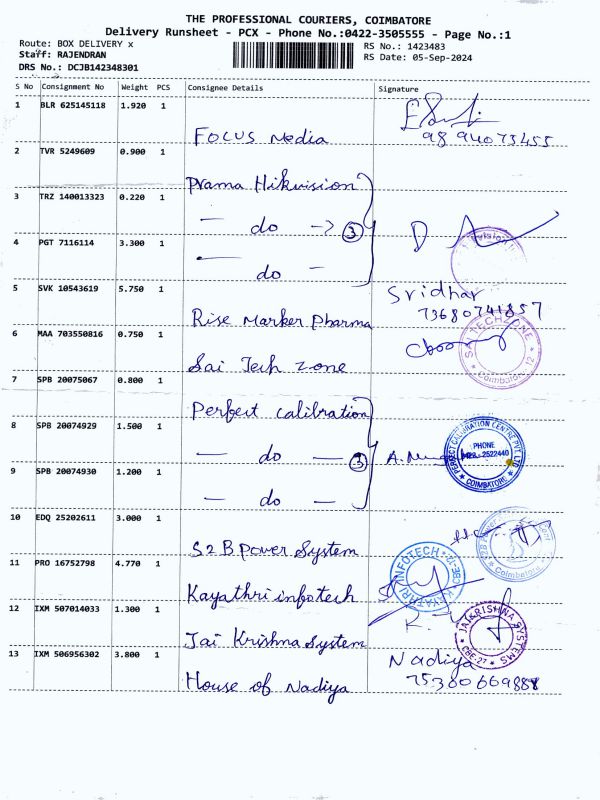 THE PROFESSIONAL COURIERS, COIMBATORE
Delivery Runsheet - PCX - Phone No.:0422-3505555 - Page No.:1
Route: BOX DELIVERY x
RS No.: 1423483
Staff: RAJENDRAN
RS Date: 05-Sep-2024
DRS No.: DCJB142348301
S No Consignment No Weight PCS Consignee Details Signature
1 BLR 625145118 1.920 1
Focus Media 98 94073455
2 TVR 5249609 0.900 1
Prama Hikvision
3 TRZ 140013323 0.220 1
— do —> 3
4 PGT 7116114 3.300 1
— do —
5 SVK 10543619 5.750 1 Sridhar
Rise Marker Pharma 73680741857
6 MAA 703550816 0.750 1
Sai Tech Zone
SAI TECHZONE
Coimbatore-12
7 SPB 20075067 0.800 1
Perfect calibration
8 SPB 20074929 1.500 1
— do — 3
PERFECT CALIBRATION CENTRE PVT LTD
PHONE
2522440
COIMBATORE
9 SPB 20074930 1.200 1
— do —
10 EDQ 25202611 3.000 1
S2B Power System
Coimbatore
11 PRO 16752798 4.770 1
Kayathri infotech
KAYATHRI INFOTECH
CBE-12
12 IXM 507014033 1.300 1
Jai Krishna System
JAI KRISHNA SYSTEMS
CBE-27
13 IXM 506956302 3.800 1 Nadiya
House of Nadiya 75300669888